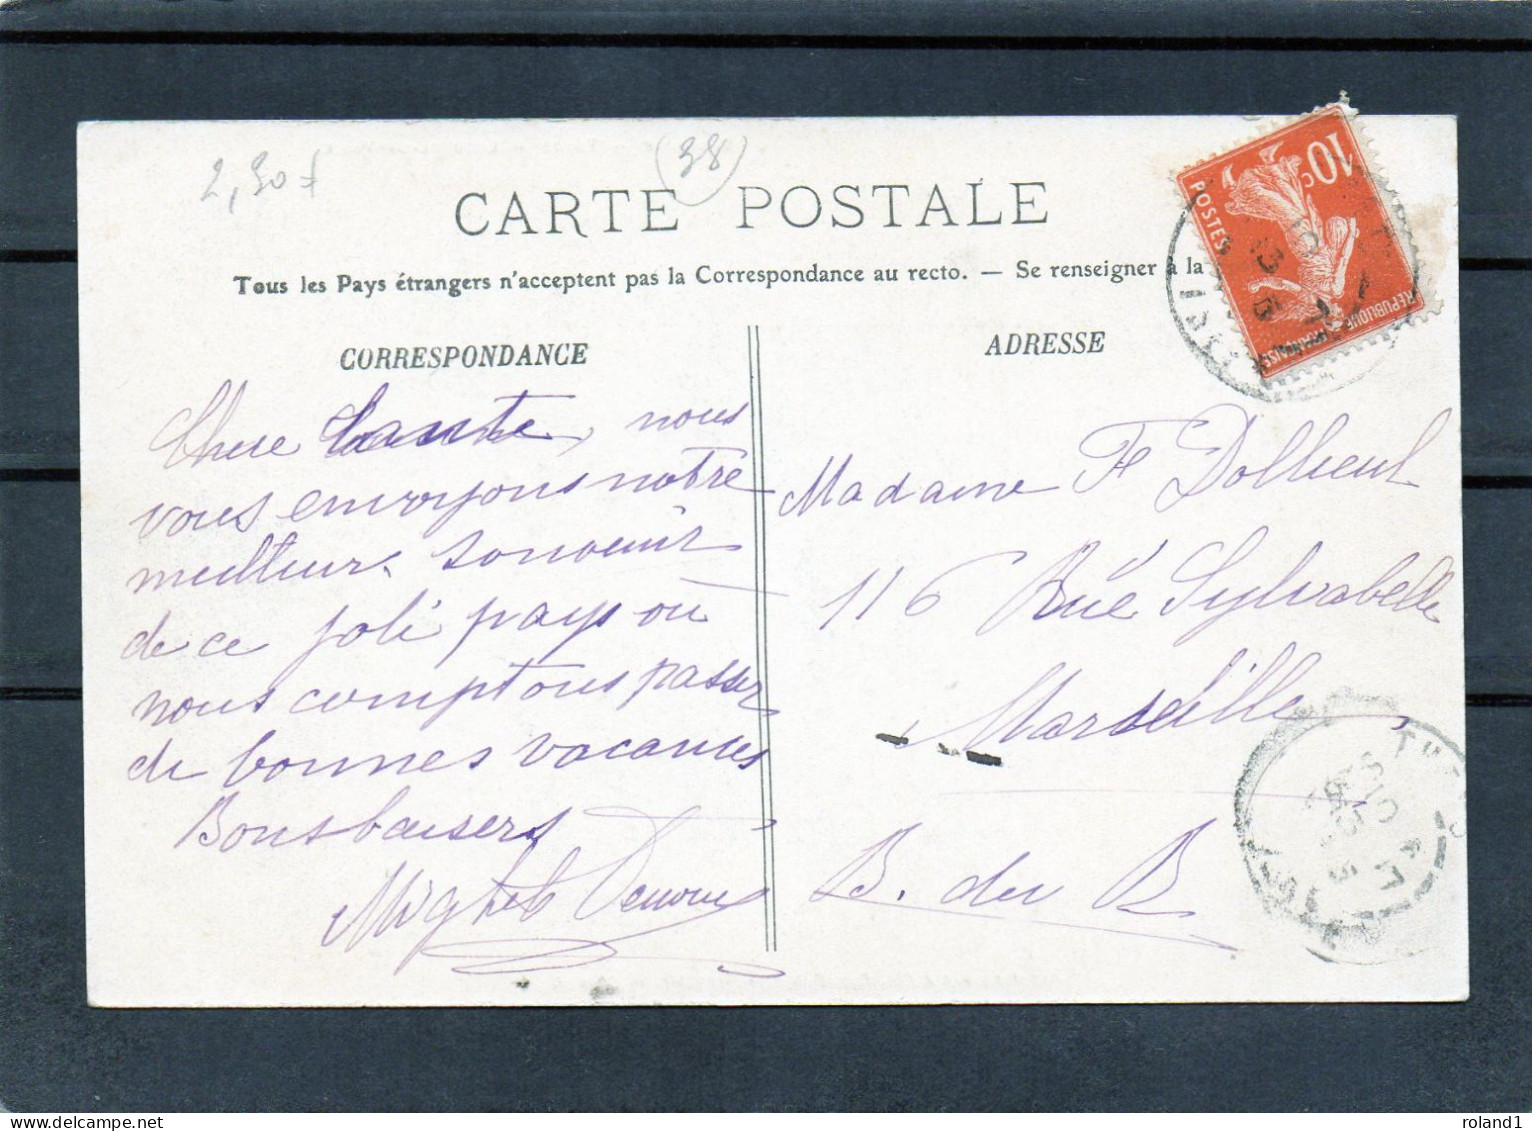 2,30 f
38
CARTE POSTALE
Tous les Pays étrangers n'acceptent pas la Correspondance au recto. — Se renseigner à la
CORRESPONDANCE
Chere tante, nous
vous envoyons notre
meilleur souvenir
de ce joli pays où
nous comptons passer
de bonnes vacances
Bons baisers
ADRESSE
Madame F Dollieul
116 Rue Sylvabelle
Marseille
B. du R
10c
POSTES
REPUBLIQUE FRANÇAISE
roland1